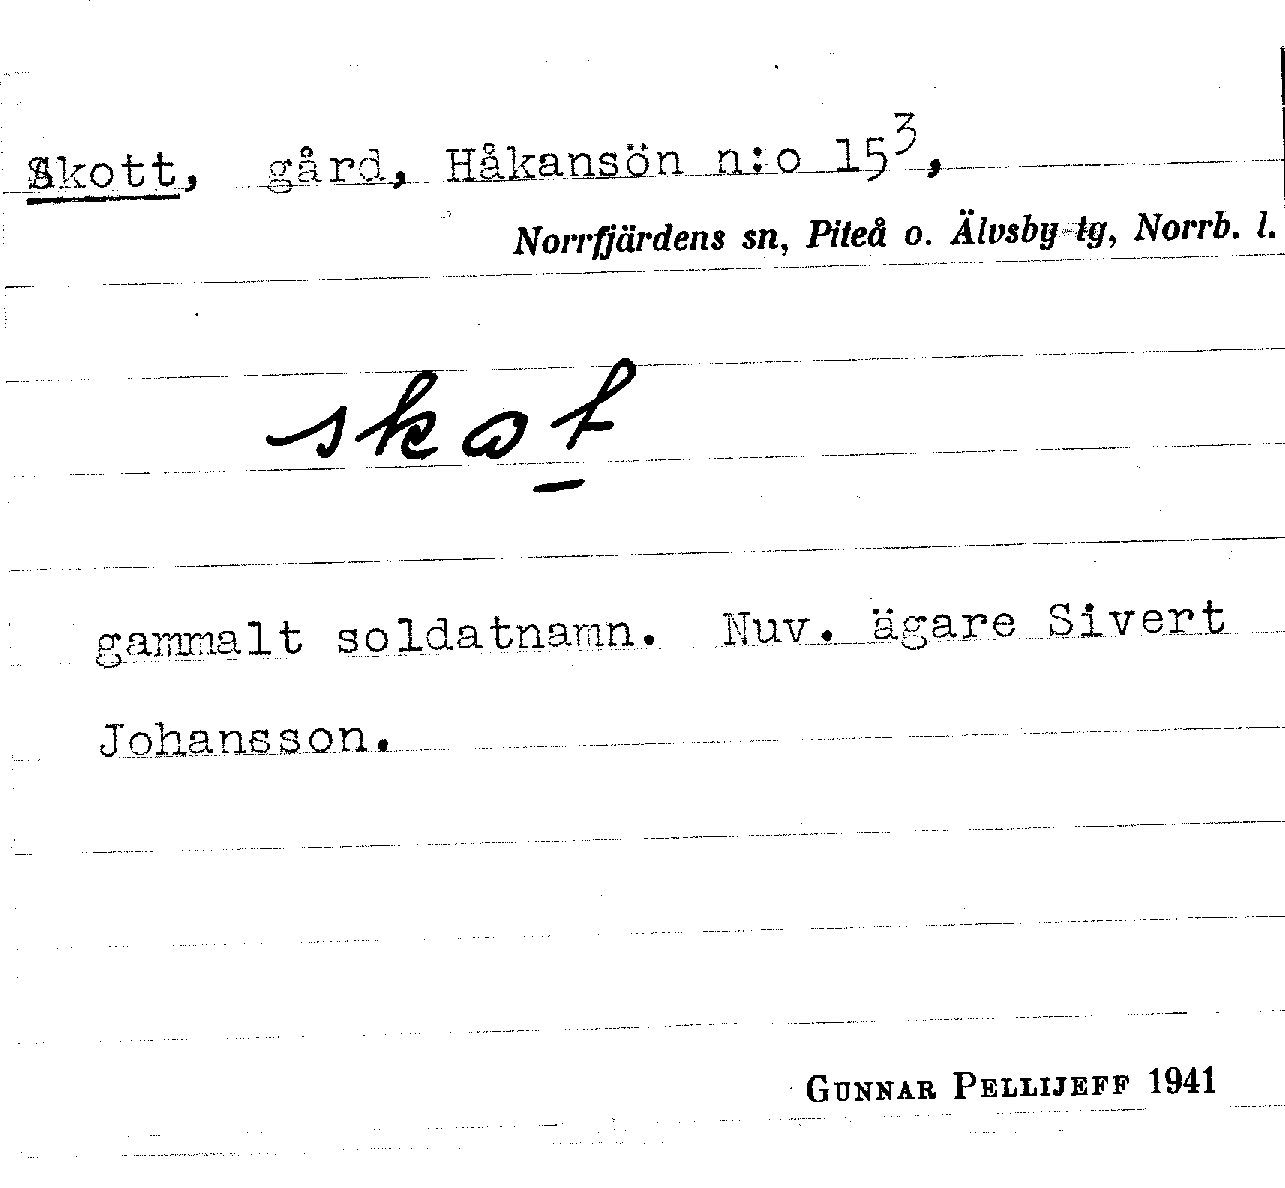 Skott, gård, Håkansön n:o 15³,
Norrfjärdens sn, Piteå o. Älvsby tg, Norrb. l.
skot
gammalt soldatnamn. Nuv. ägare Sivert
Johansson.
GUNNAR PELLIJEFF 1941